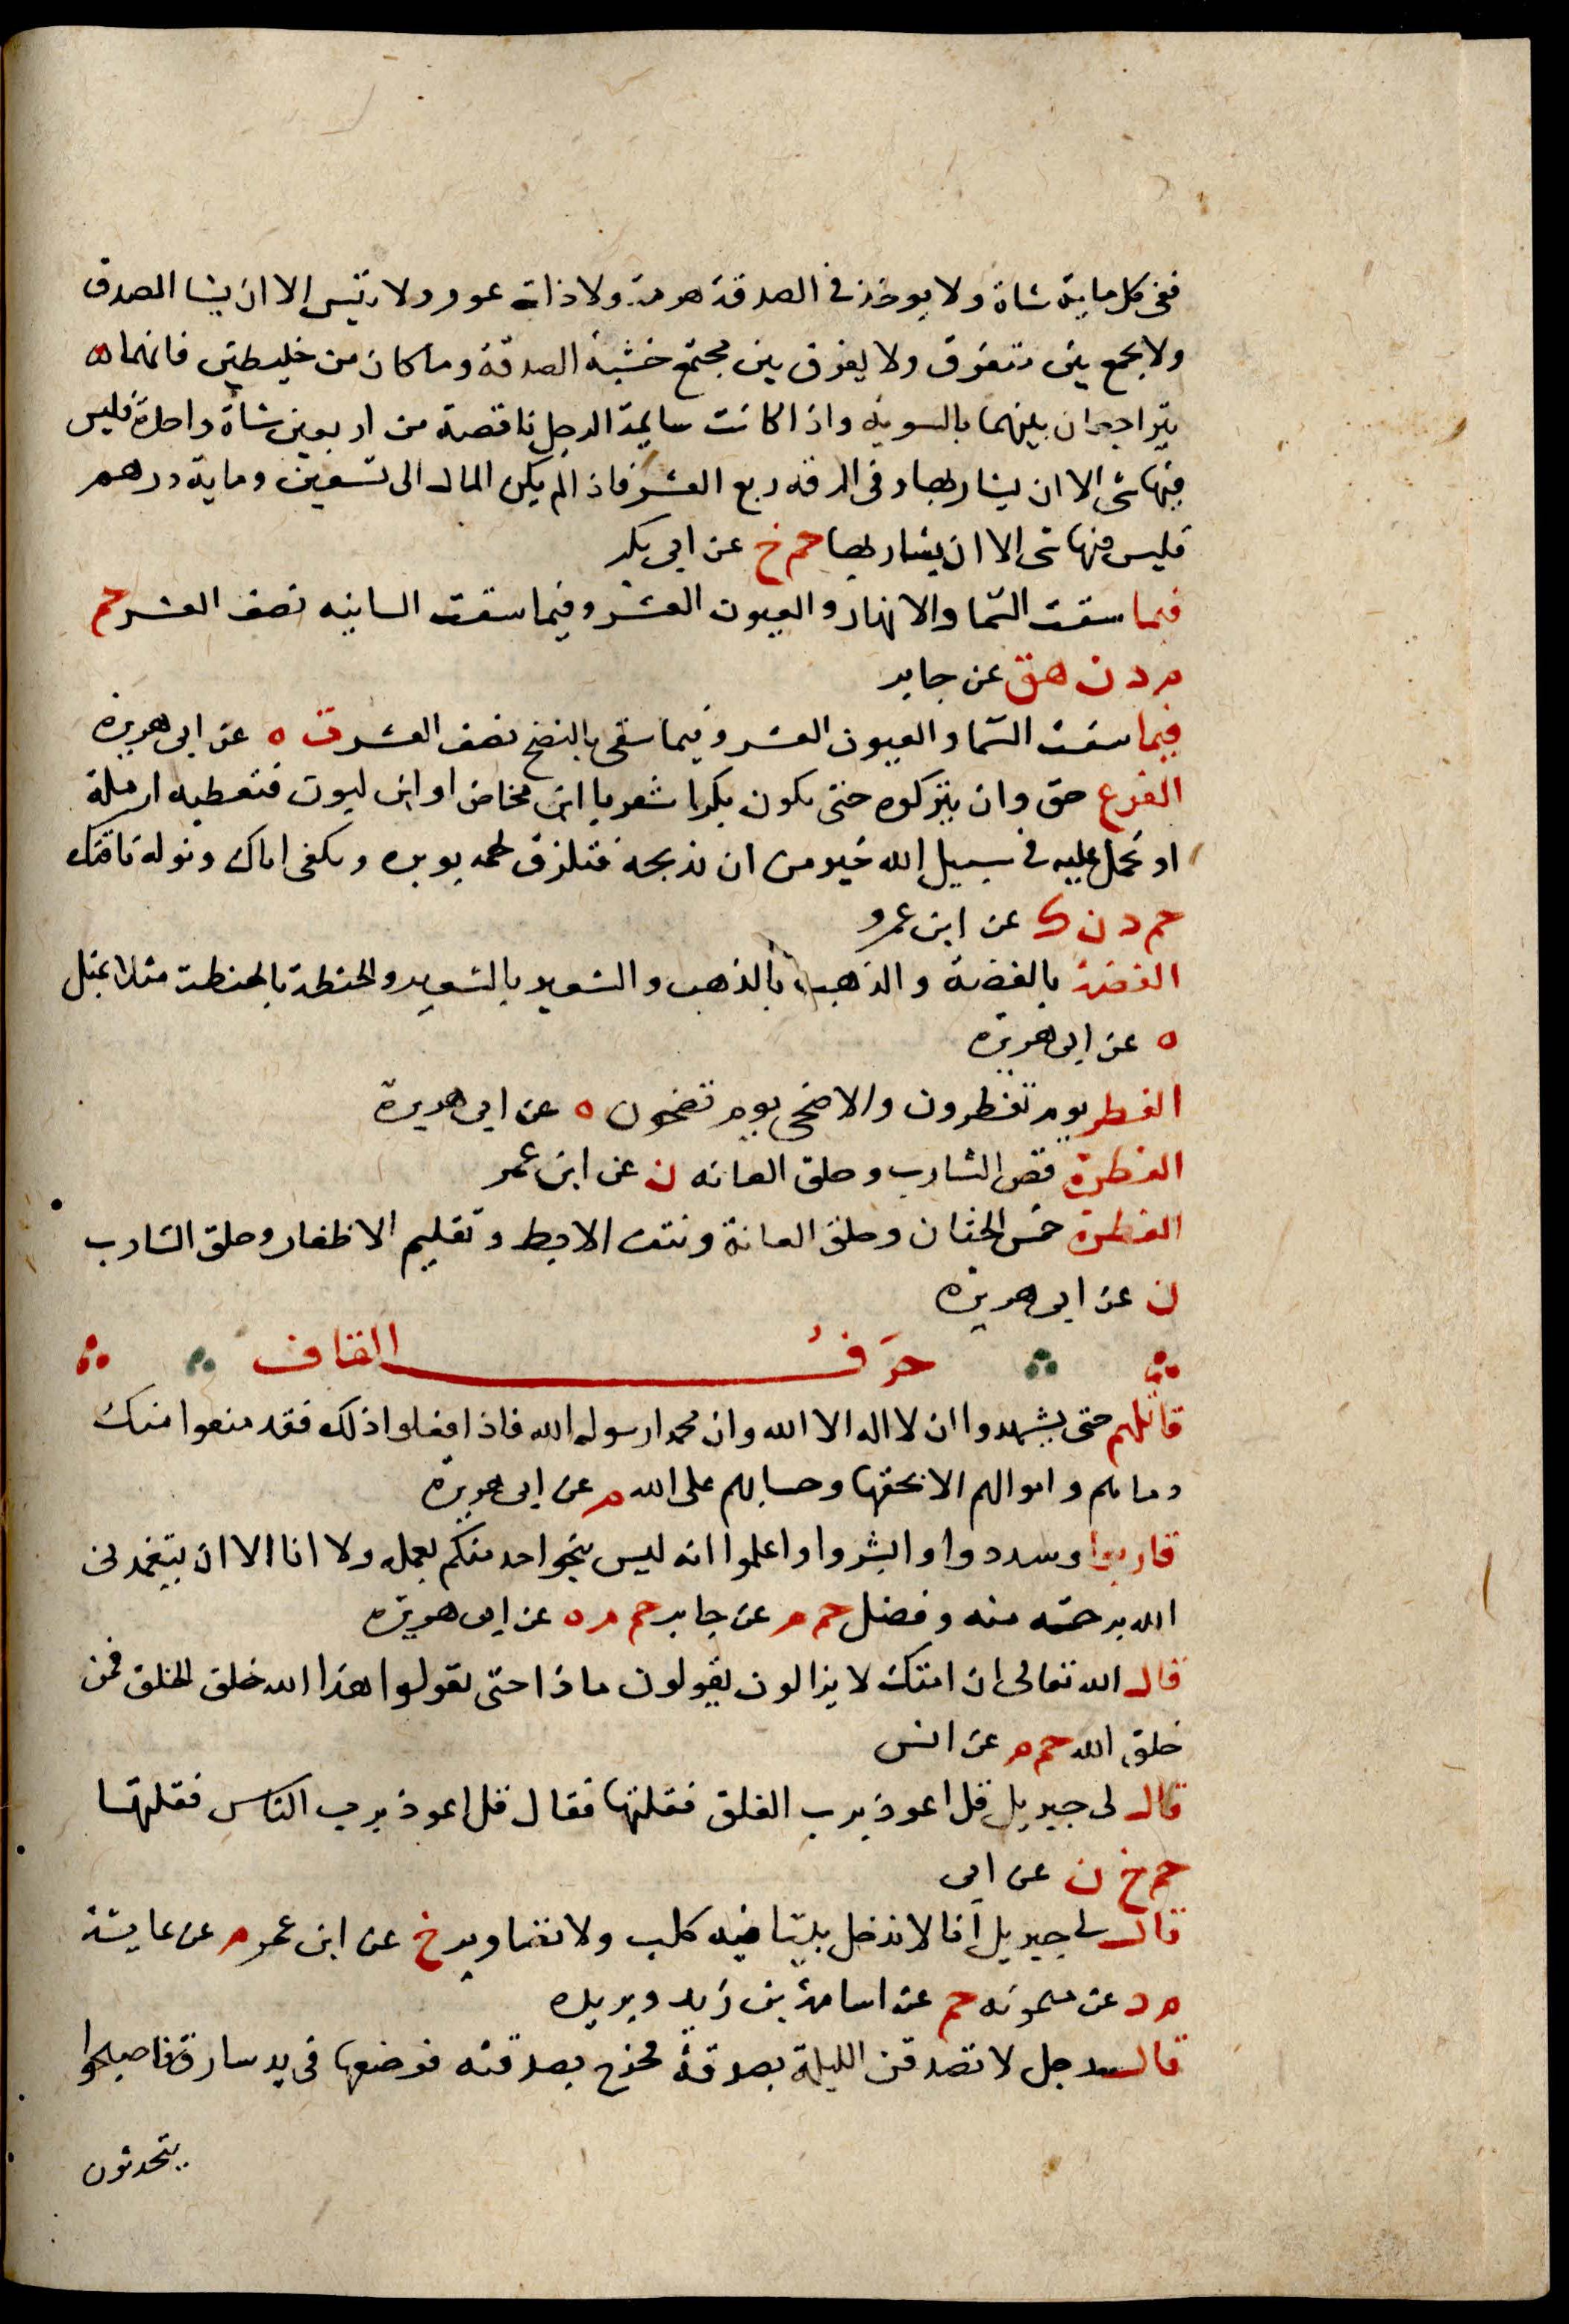 ففى كل ماية شاة ولا يوخذ فى الصدقة هرمة ولا ذات عور ولا تيس الا ان يشا المصدق
ولا يجمع بين متفرق ولا يفرق بين مجتمع خشية الصدقة وما كان من خليطين فانهما
يتراجعان بينهما بالسوية واذا كانت سايمة الرجل ناقصة من اربعين شاة واحدة فليس
فيها شى الا ان يشا ربها وفى الرقه ربع العشر فاذا لم يكن المال الى تسعين وماية درهم
فليس فيها شى الا ان يشا ربها حم خ عن ابى بكر
فيما سقت السّما والانهار والعيون العشر وفيما سقت السانيه نصف العشر حم
م د ن هق عن جابر
فيما سقت السّما والعيون العشر وفيما سقى بالنضح نصف العشر ت ه عن ابى هريرة
الفرع حق وان يتركوه حتى يكون بكرا شغريا ابن مخاض او ابن لبون فتعطيه ارملة
او تحمل عليه فى سبيل الله خير من ان تذبحه فتلزق لحمه بوبره وتكفى اناك وتوله ناقتك
حم د ن ك عن ابن عمرو
الفضة بالفضة والذهب بالذهب والشعير بالشعير والحنطة بالحنطة مثلا بمثل
ه عن ابى هريرة
الفطر يوم تفطرون والاضحى يوم تضحون ه عن ابى هريرة
الفطرة قص الشارب وحلق العانه ن عن ابن عمر
الفطرة خمس الختان وحلق العانة ونتف الابط وتقليم الاظفار وحلق الشارب
ن عن ابى هريرة
حَرفُ القاف
قاتلهم حتى يشهدوا ان لا اله الا الله وان محمدا رسول الله فاذا فعلوا ذلك فقد منعوا منك
دماهم واموالهم الا بحقها وحسابهم على الله م عن ابى هريرة
قاربوا وسددوا وابشروا واعلموا انه ليس ينجو احد منكم بعمله ولا انا الا ان يتغمدنى
الله برحمته منه وفضل حم م عن جابر حم م ه عن ابى هريرة
قال الله تعالى ان امتك لا يزالون يقولون ماذا حتى يقولوا هذا الله خلق الخلق فمن
خلق الله حم م عن انس
قال لى جبريل قل اعوذ برب الفلق فقلتها فقال قل اعوذ برب الناس فقلتها
حم خ ن عن ابى
قال لى جبريل انا لا ندخل بيتا فيه كلب ولا تصاوير خ عن ابن عمر م عن عايشة
م د عن ميمونه حم عن اسامة بن زيد وبريده
قال رجل لا تصدقن الليلة بصدقة فخرج بصدقته فوضعها فى يد سارق فاصبحوا
يتحدثون